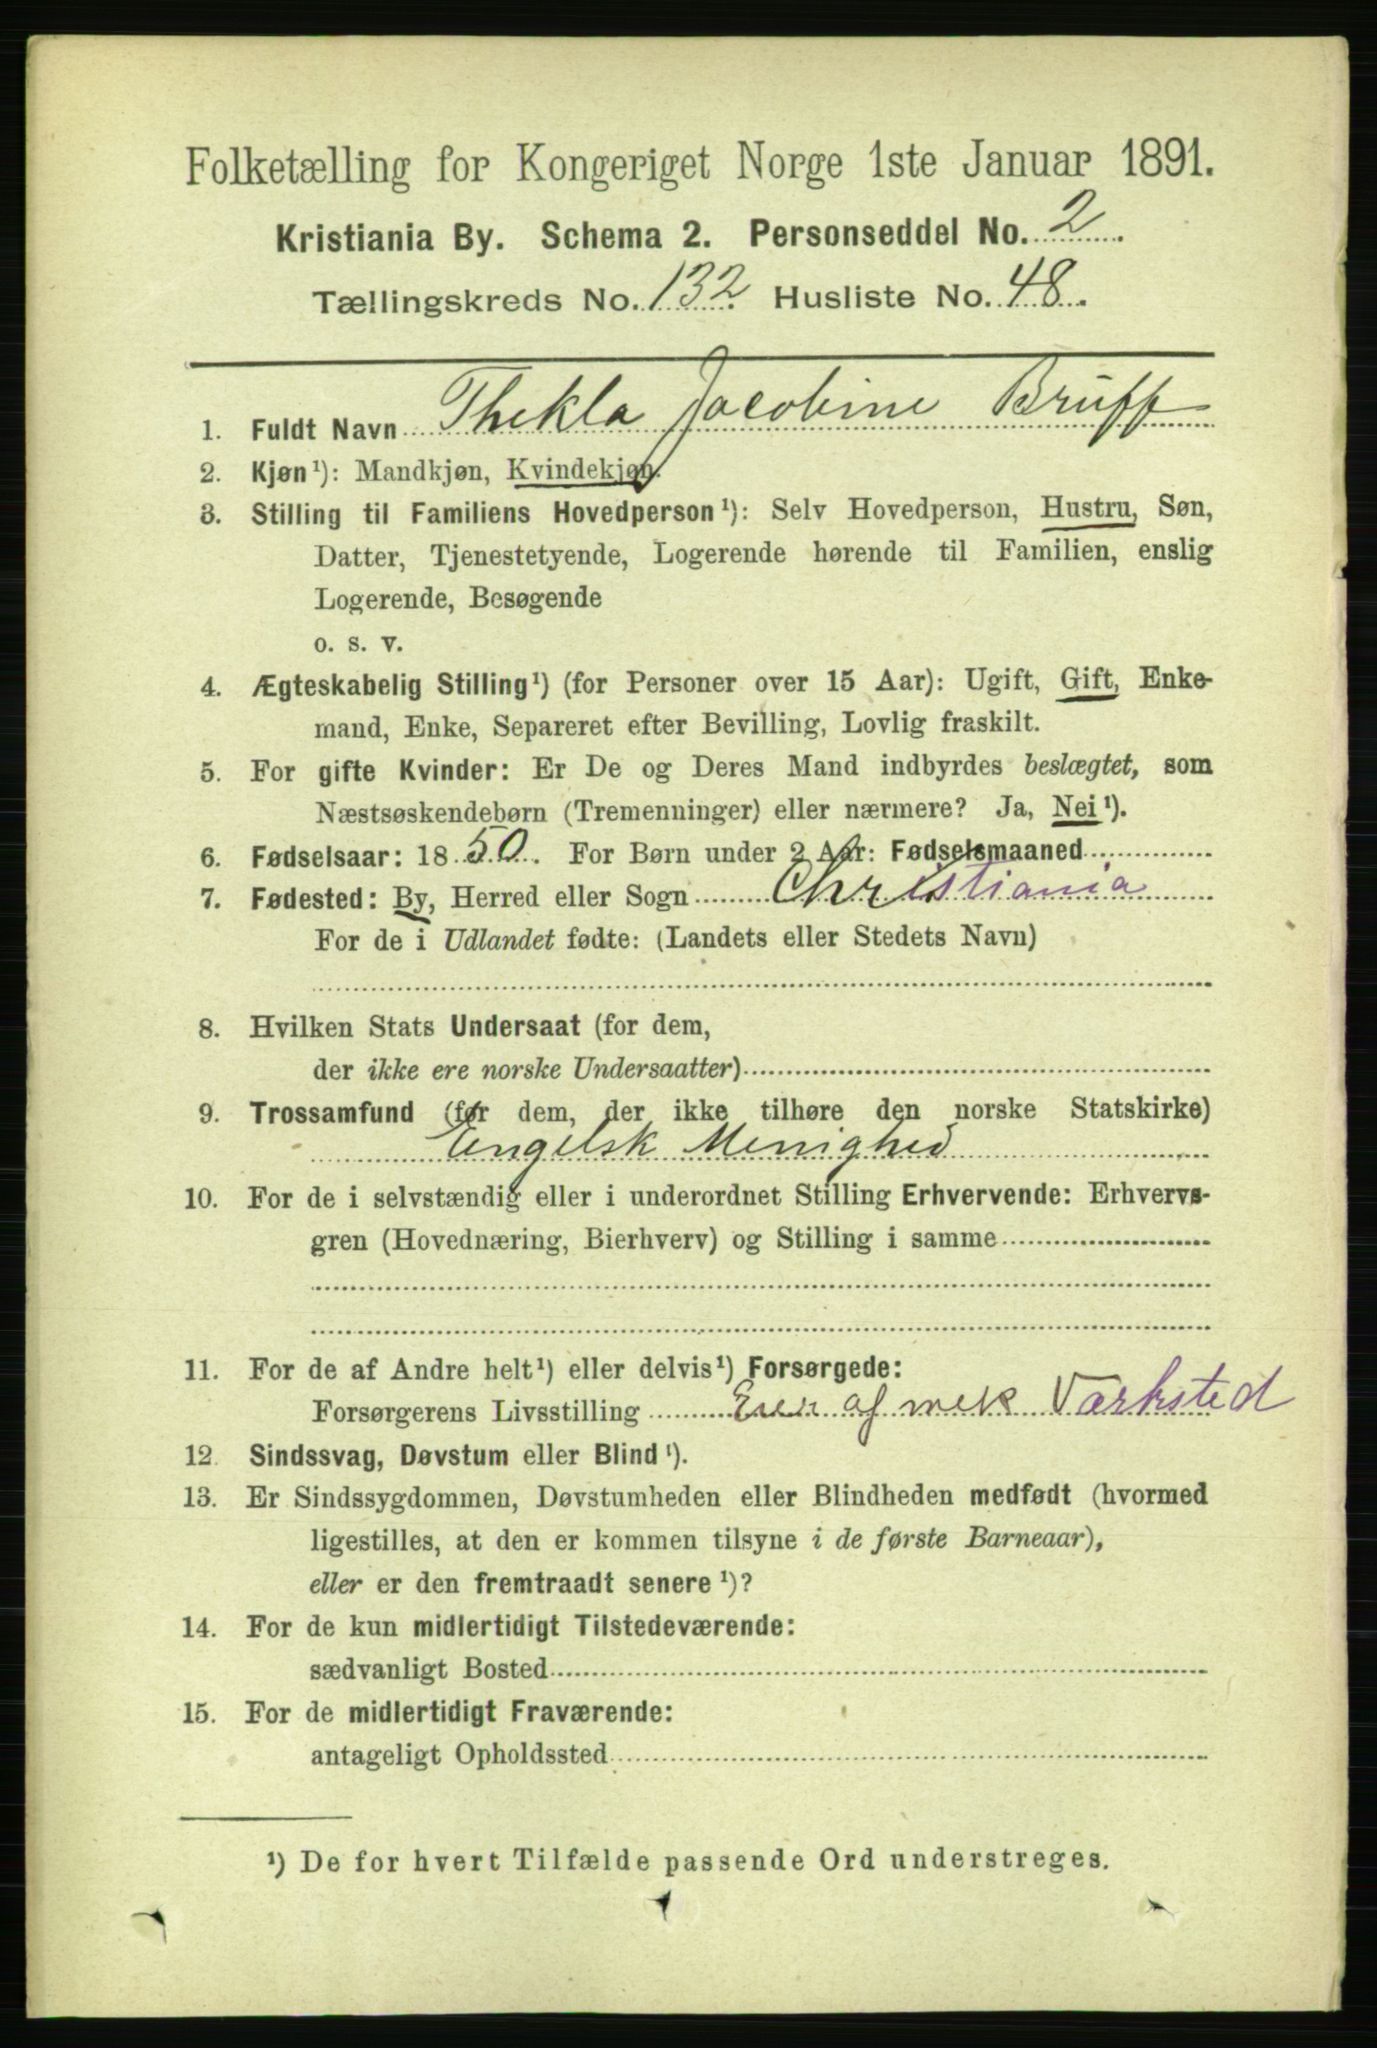 Folketælling for Kongeriget Norge 1ste Januar 1891.
Kristiania By. Schema 2. Personseddel No. 2
Tællingskreds No. 132 Husliste No. 48.
1. Fuldt Navn Thekla Jacobine Bruff
2. Kjøn¹): Mandkjøn, Kvindekjøn.
3. Stilling til Familiens Hovedperson¹): Selv Hovedperson, Hustru, Søn,
Datter, Tjenestetyende, Logerende hørende til Familien, enslig
Logerende, Besøgende
o. s. v.
4. Ægteskabelig Stilling¹) (for Personer over 15 Aar): Ugift, Gift, Enke-
mand, Enke, Separeret efter Bevilling, Lovlig fraskilt.
5. For gifte Kvinder: Er De og Deres Mand indbyrdes beslægtet, som
Næstsøskendebørn (Tremenninger) eller nærmere? Ja, Nei¹).
6. Fødselsaar: 1850. For Børn under 2 Aar: Fødselsmaaned
7. Fødested: By, Herred eller Sogn Christiania
For de i Udlandet fødte: (Landets eller Stedets Navn)
8. Hvilken Stats Undersaat (for dem,
der ikke ere norske Undersaatter)
9. Trossamfund (før dem, der ikke tilhøre den norske Statskirke)
Engelsk Menighed
10. For de i selvstændig eller i underordnet Stilling Erhvervende: Erhvervs-
gren (Hovednæring, Bierhverv) og Stilling i samme
11. For de af Andre helt¹) eller delvis¹) Forsørgede:
Forsørgerens Livsstilling Eier af mek Værksted
12. Sindssvag, Døvstum eller Blind¹).
13. Er Sindssygdommen, Døvstumheden eller Blindheden medfødt (hvormed
ligestilles, at den er kommen tilsyne i de første Barneaar),
eller er den fremtraadt senere¹)?
14. For de kun midlertidigt Tilstedeværende:
sædvanligt Bosted
15. For de midlertidigt Fraværende:
antageligt Opholdssted
¹) De for hvert Tilfælde passende Ord understreges.